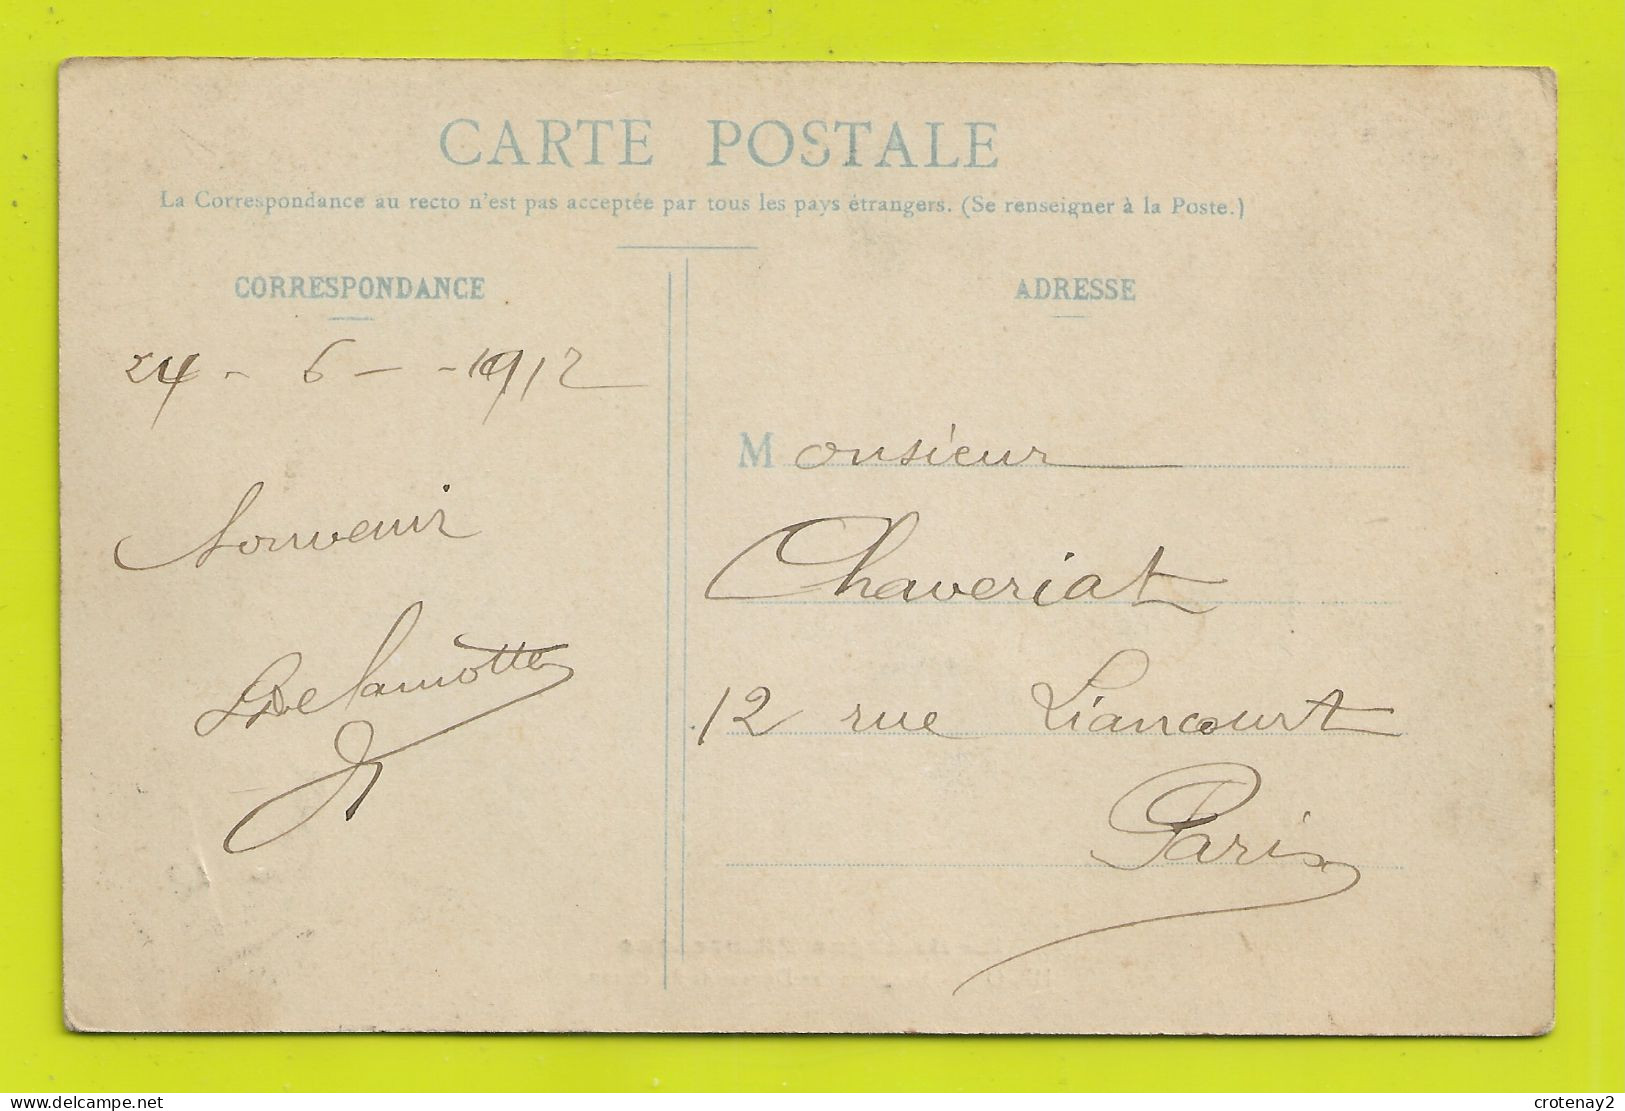 CARTE POSTALE
La Correspondance au recto n'est pas acceptée par tous les pays étrangers. (Se renseigner à la Poste.)
CORRESPONDANCE
24 - 6 - - 1912
Souvenir
Delamotte
ADRESSE
Monsieur
Chaveriat
12 rue Liancourt
Paris
delcampe.net
crotenay2